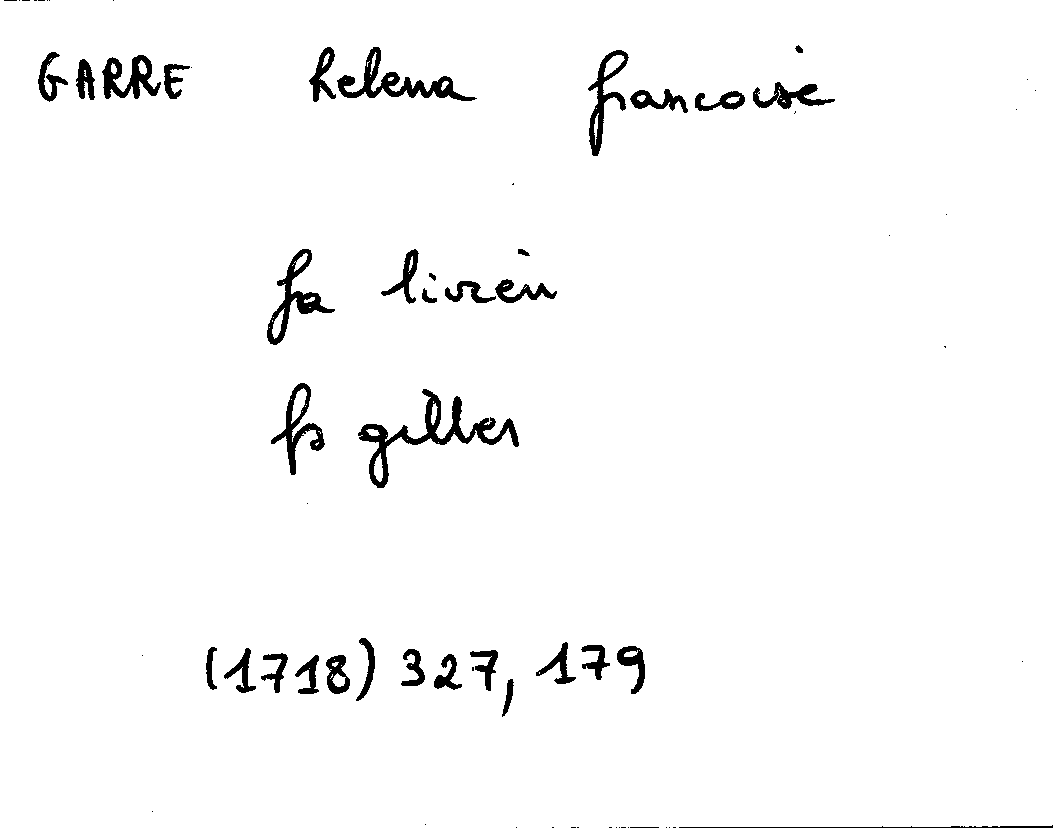 GARRE helena francoise
fa livien
fs gilles
(1718) 327, 179